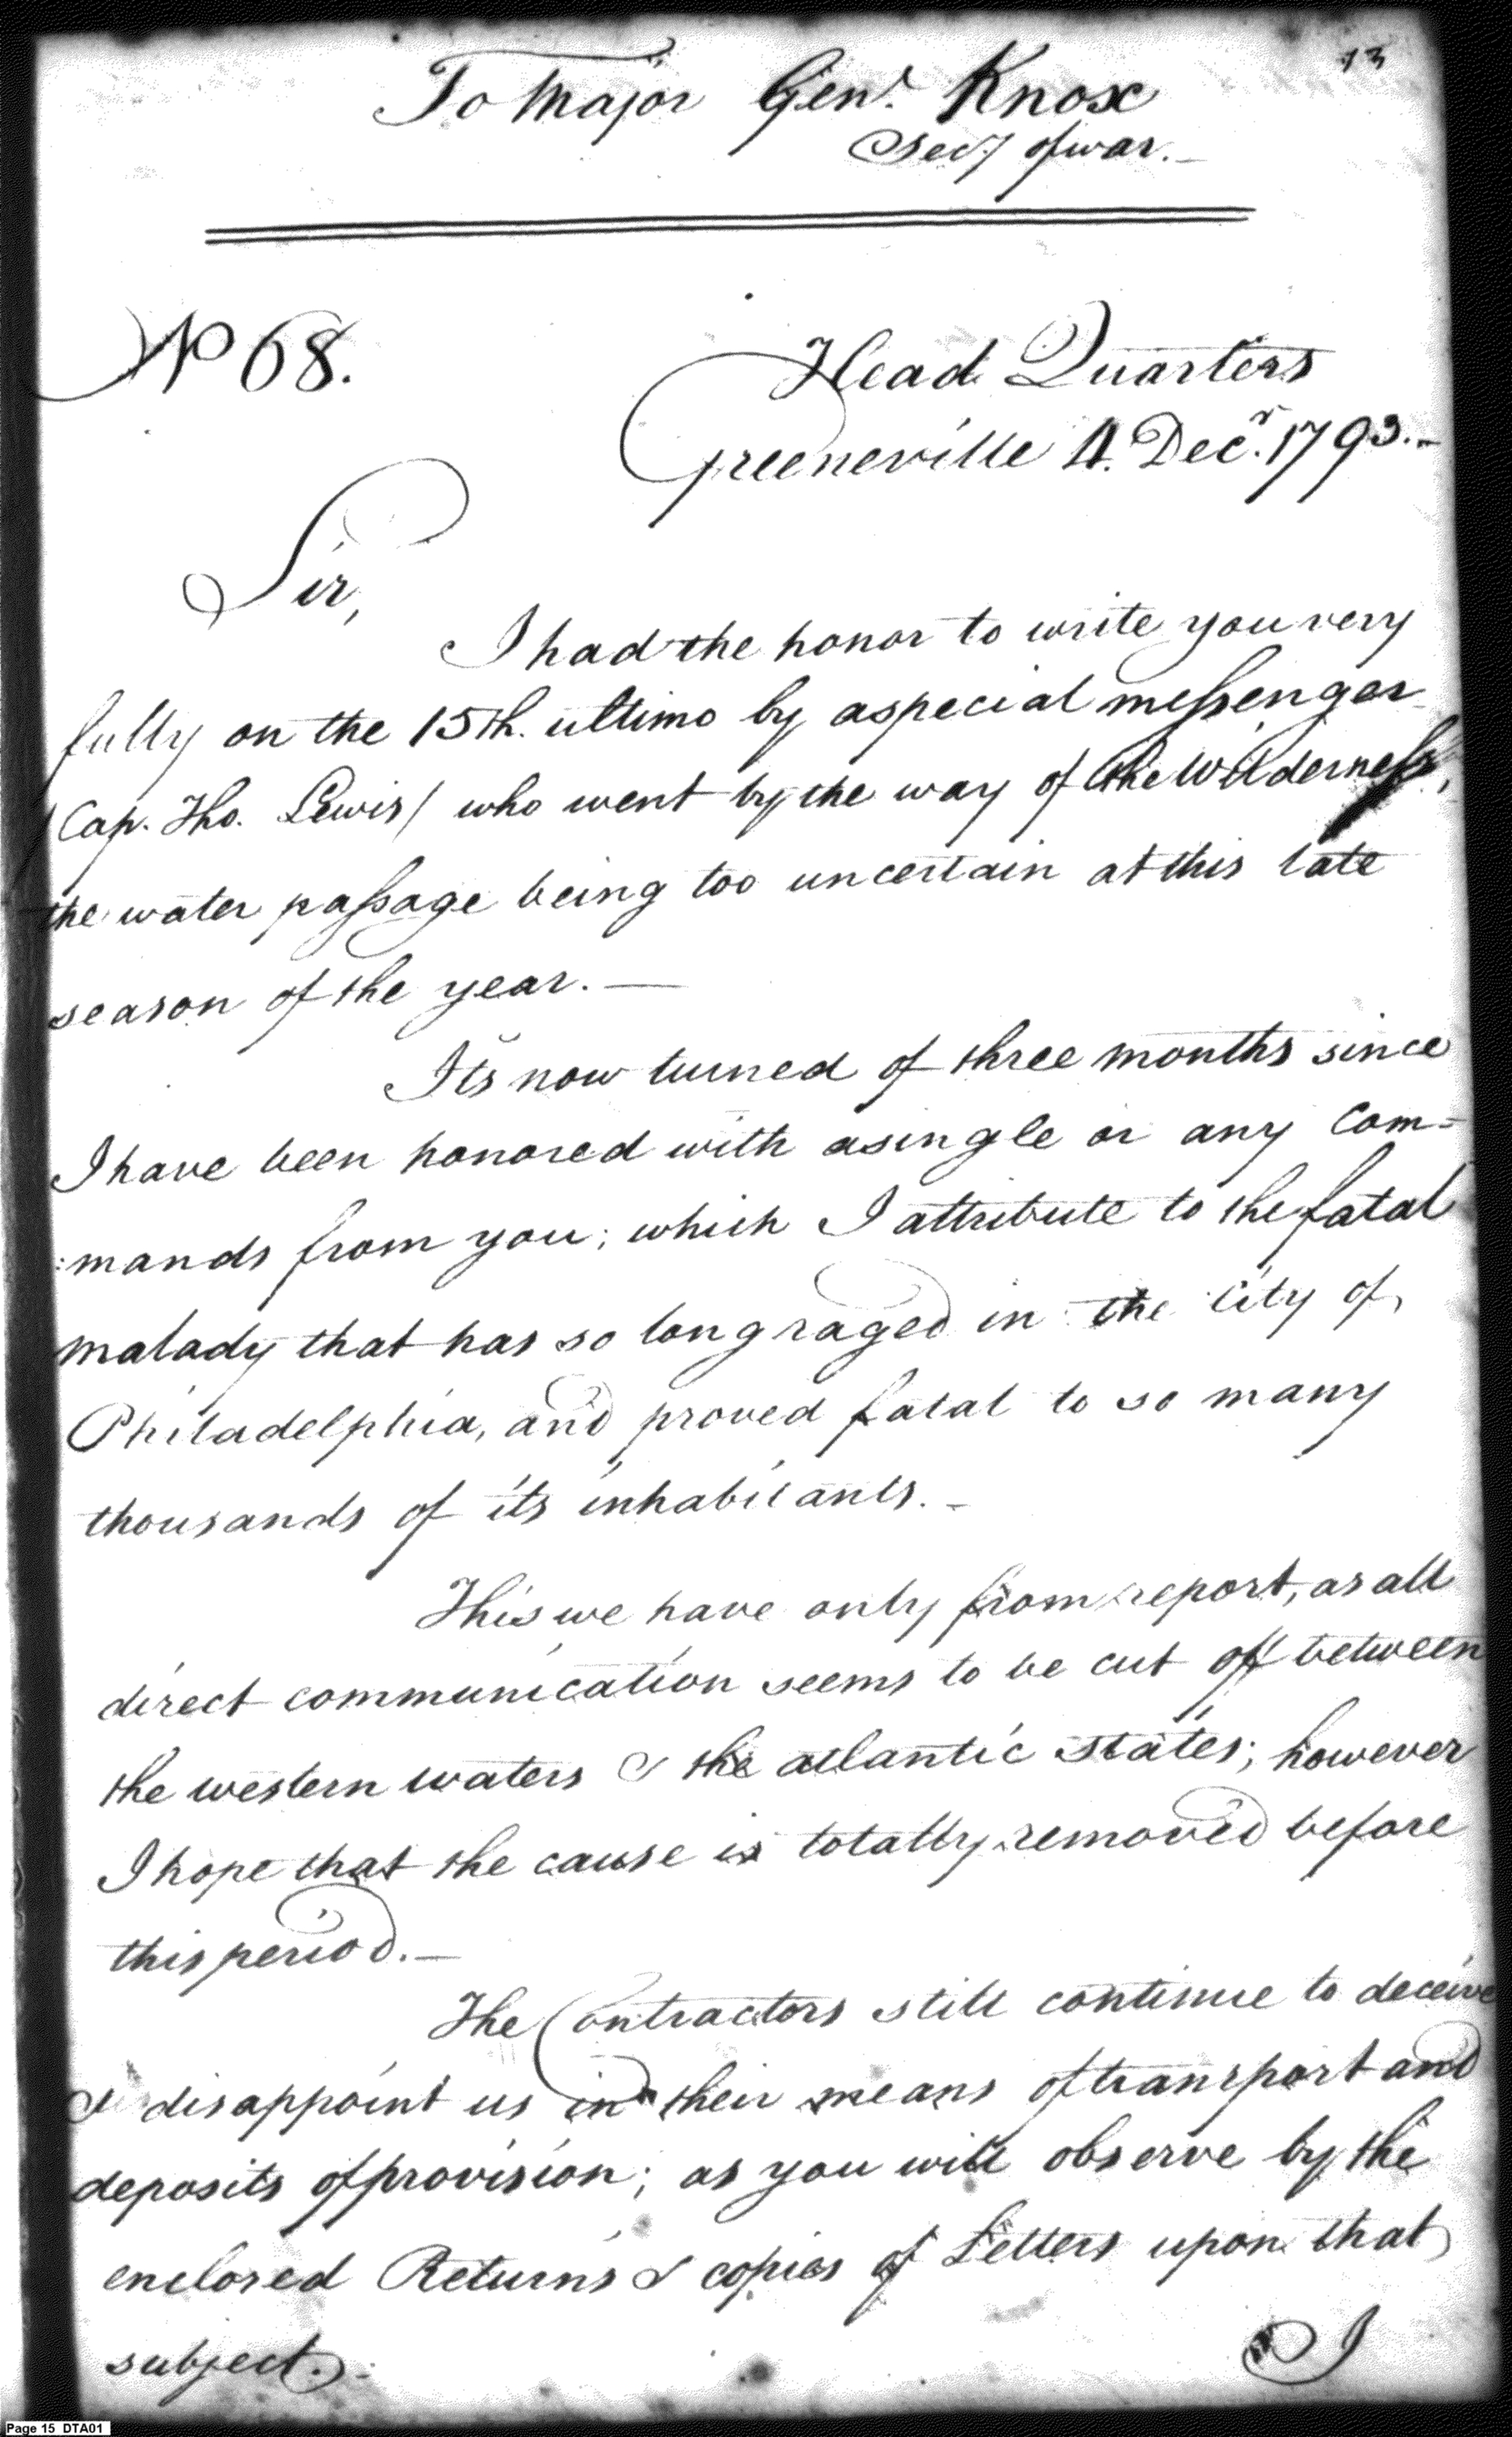 13
To Major Genl. Knox
Secy of war. _
No 68.
Head Quarters
Greeneville 4. Decr. 1793. _
Sir,
I had the honor to write you very
fully on the 15th. ultimo by a special messenger
/ Cap. Tho. Lewis / who went by the way of the Wilderness,
the water passage being too uncertain at this late
season of the year. —
Its now turned of three months since
I have been honored with a single or any com=
:mands from you; which I attribute to the fatal
malady that has so long raged in the City of
Philadelphia, and proved fatal to so many
thousands of its inhabitants. _
This we have only from report, as all
direct communication seems to be cut off between
the western waters & the atlantic states; however
I hope that the cause is totally removed before
this period. —
The Contractors still continue to deceive
& disappoint us in their means of transport and
deposits of provision; as you will observe by the
enclosed Returns & copies of Letters upon that
subject. :
I
Page 15 DTA01